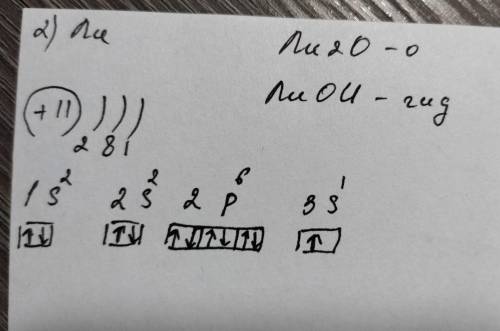 2) Na
Na2O - о
NaOH - гид
+11 )))
2 8 1
1s² 2s² 2p⁶ 3s¹
↑↓ ↑↓ ↑↓ ↑↓ ↑↓ ↑